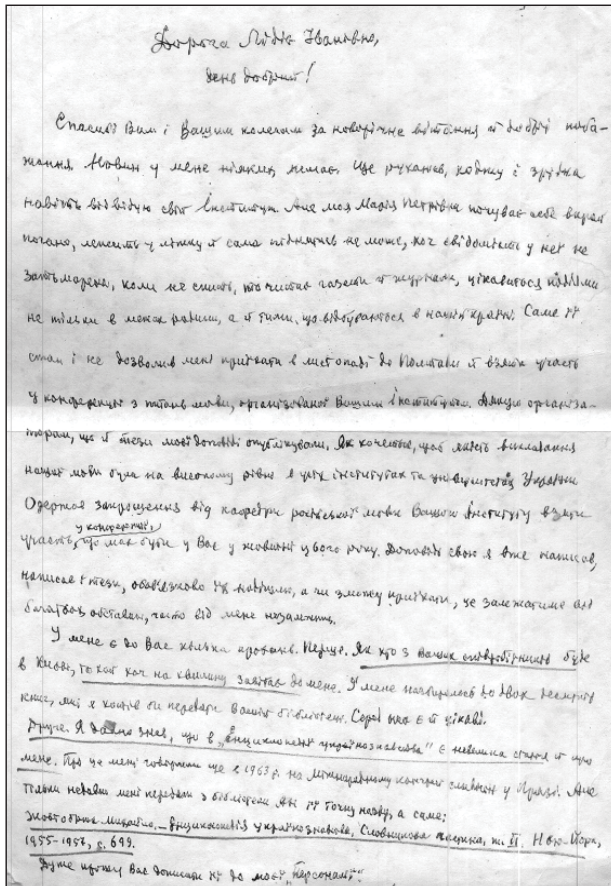 Дорога Лідіє Іванівно,
день добрий!
Спасибі Вам і Вашим колегам за новорічне вітання й добрі поба-
жання. Новин у мене ніяких немає. Ще рухаюсь, ходжу і зрідка
навіть відвідую свій Інститут. Але моя Марія Петрівна почуває себе вкрай
погано, лежить у ліжку й сама піднятись не може, хоч свідомість у неї не
затьмарена, коли не спить, то читає газети й журнали, цікавиться подіями
не тільки в межах родини, а й тими, що відбуваються в нашій країні. Саме її
стан і не дозволив мені приїхати в листопаді до Полтави й взяти участь
у конференції з питань мови, організованої Вашим інститутом. Дякую організа-
торам, що й тези моєї доповіді опублікували. Як хочеться, щоб якість викладання
нашої мови була на високому рівні в усіх інститутах та університетах України
Одержав запрошення від кафедри російської мови Вашого інституту взяти
участь у конференції, що має бути у Вас у жовтні цього року. Доповідь свою я вже написав,
написав і тези, обов'язково їх надішлю, а чи зможу приїхати, це залежатиме від
багатьох обставин, часто від мене незалежних.
У мене є до Вас кілька прохань. Перше. Як хто з Ваших співробітників буде
в Києві, то хай хоч на хвилину завітає до мене. У мене назбиралося до двох десятків
книг, які я хотів би передати Вашій бібліотеці. Серед них є й цікаві.
Друге. Я давно знав, що в „Енциклопедії українознавства" є невелика стаття й про
мене. Про це мені говорили ще в 1963 р. на міжнародному конгресі славістів у Празі. Але
тільки недавно мені передали з бібліотеки АН її точну назву, а саме:
Жовтобрюх Михайло. – Енциклопедія українознавства, Словникова частина, т. II. Нью-Йорк,
1955–1956, с. 699.
Дуже прошу Вас дописати її до моєї „персоналії".